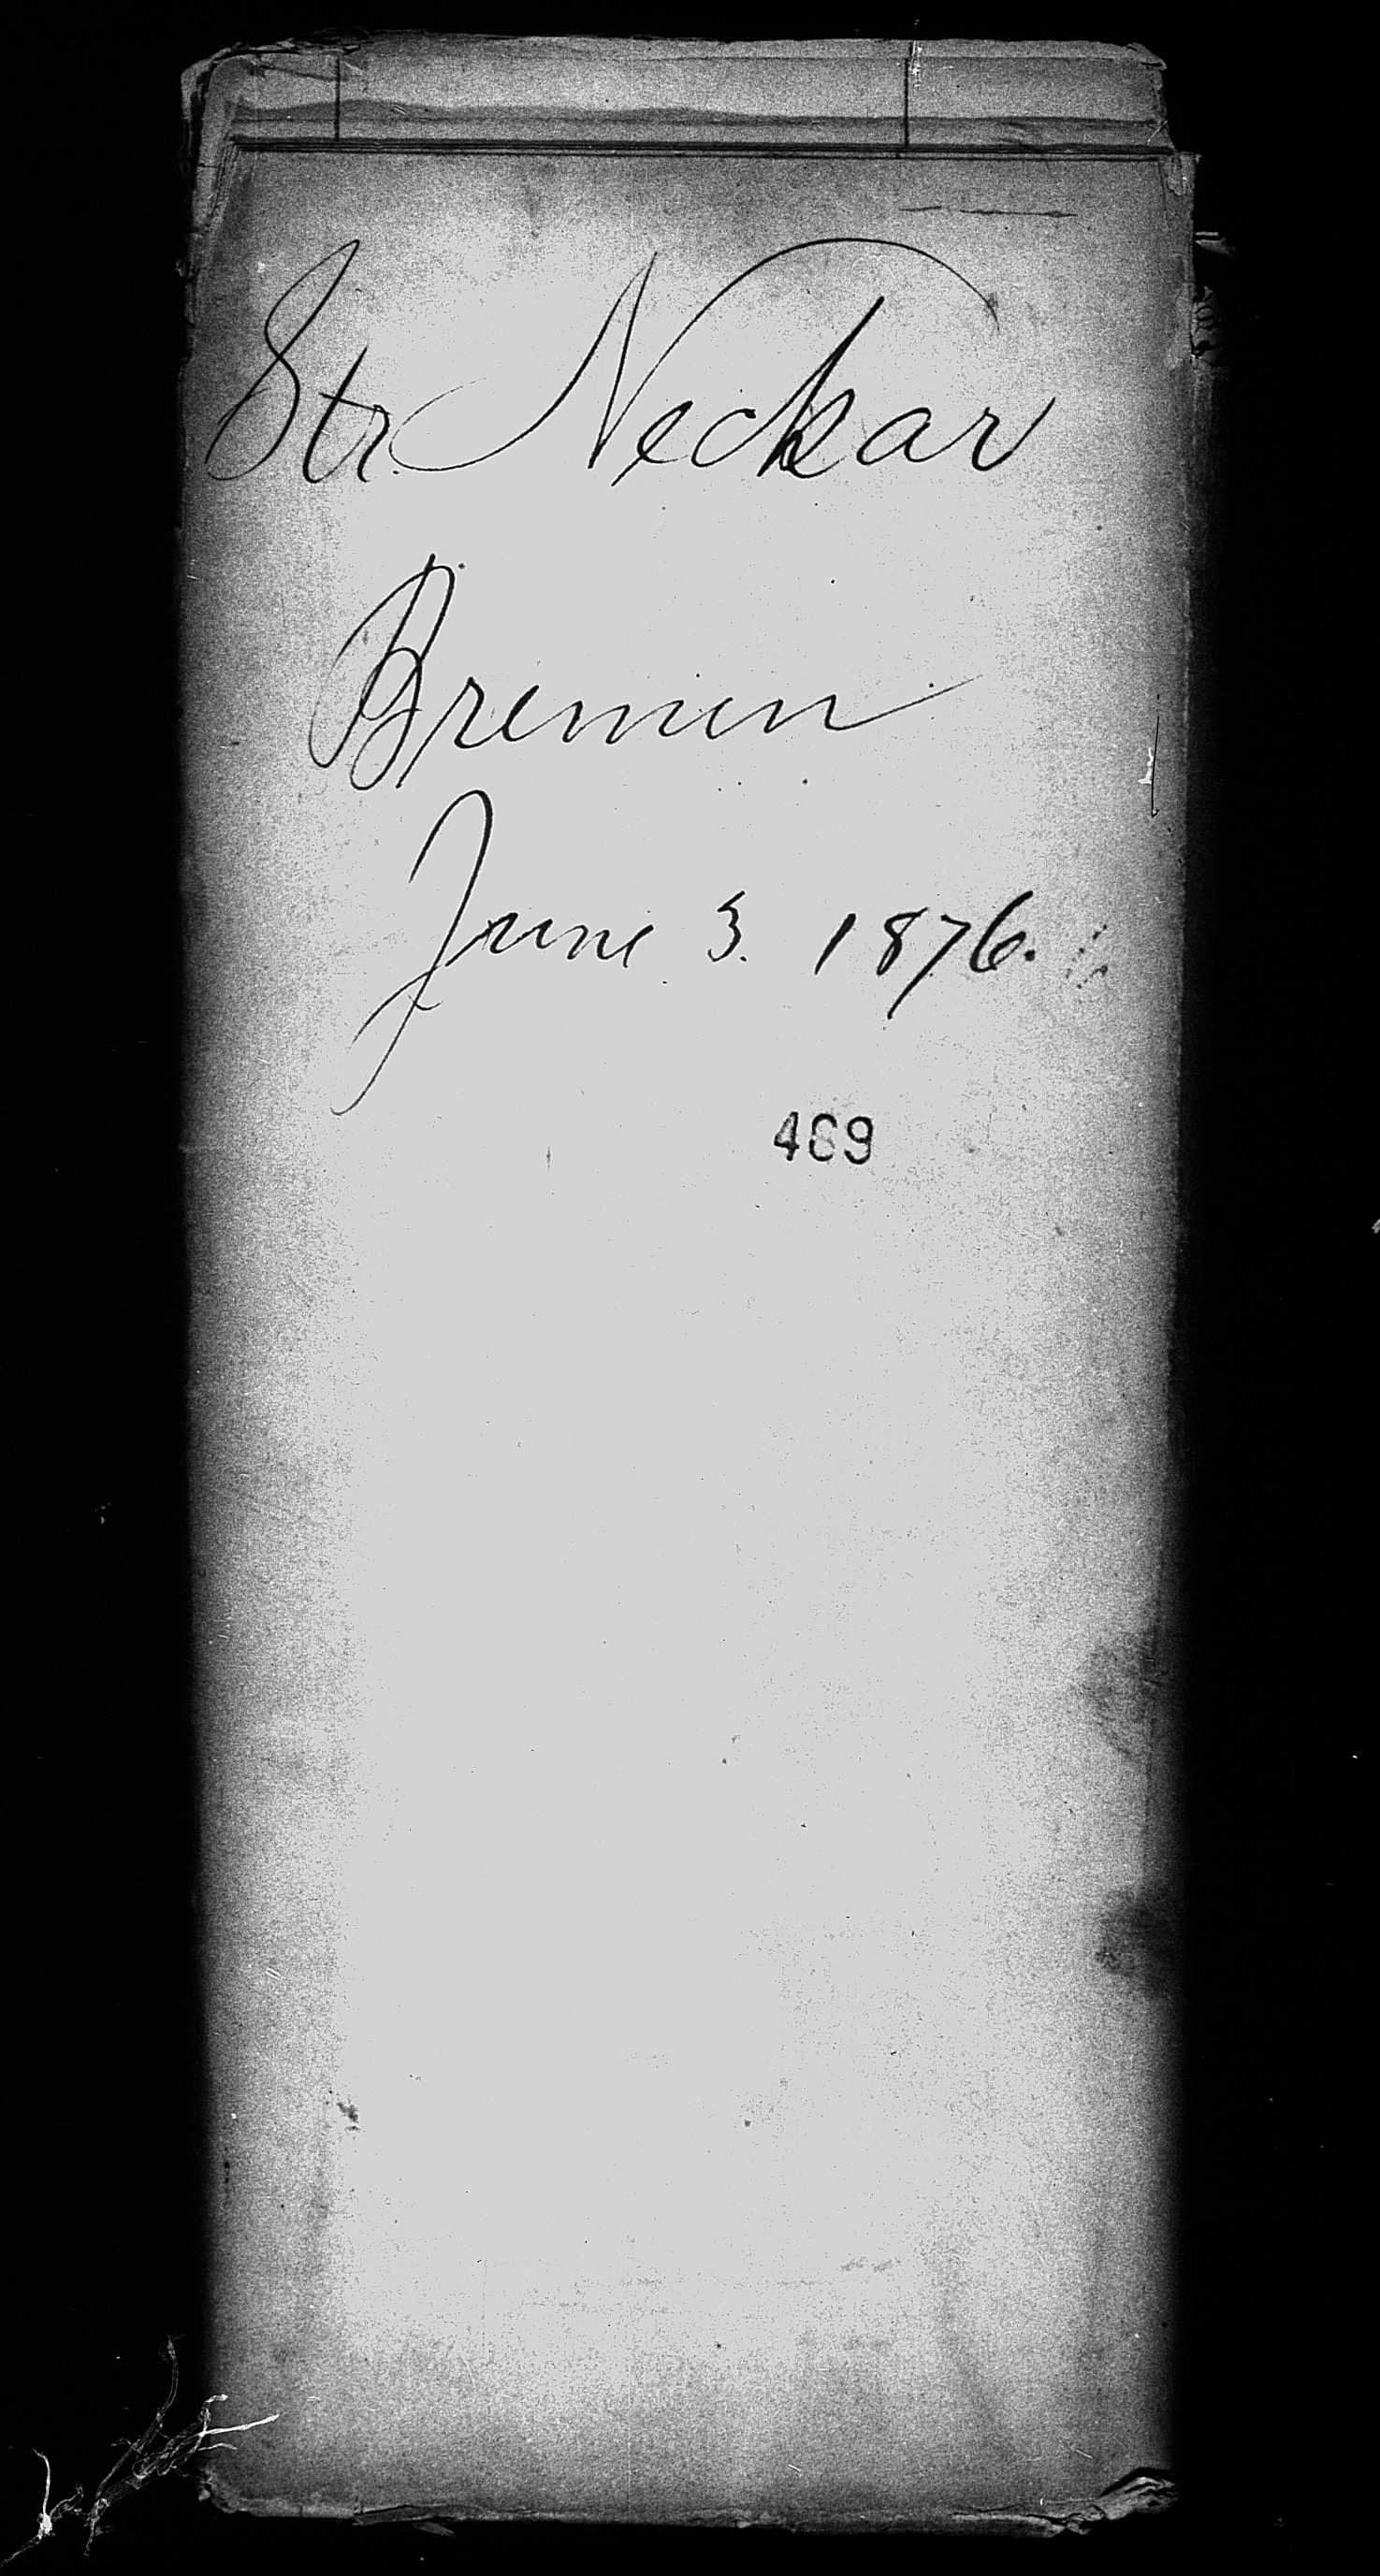 Str. Neckar
Bremen
June 3. 1876.
469